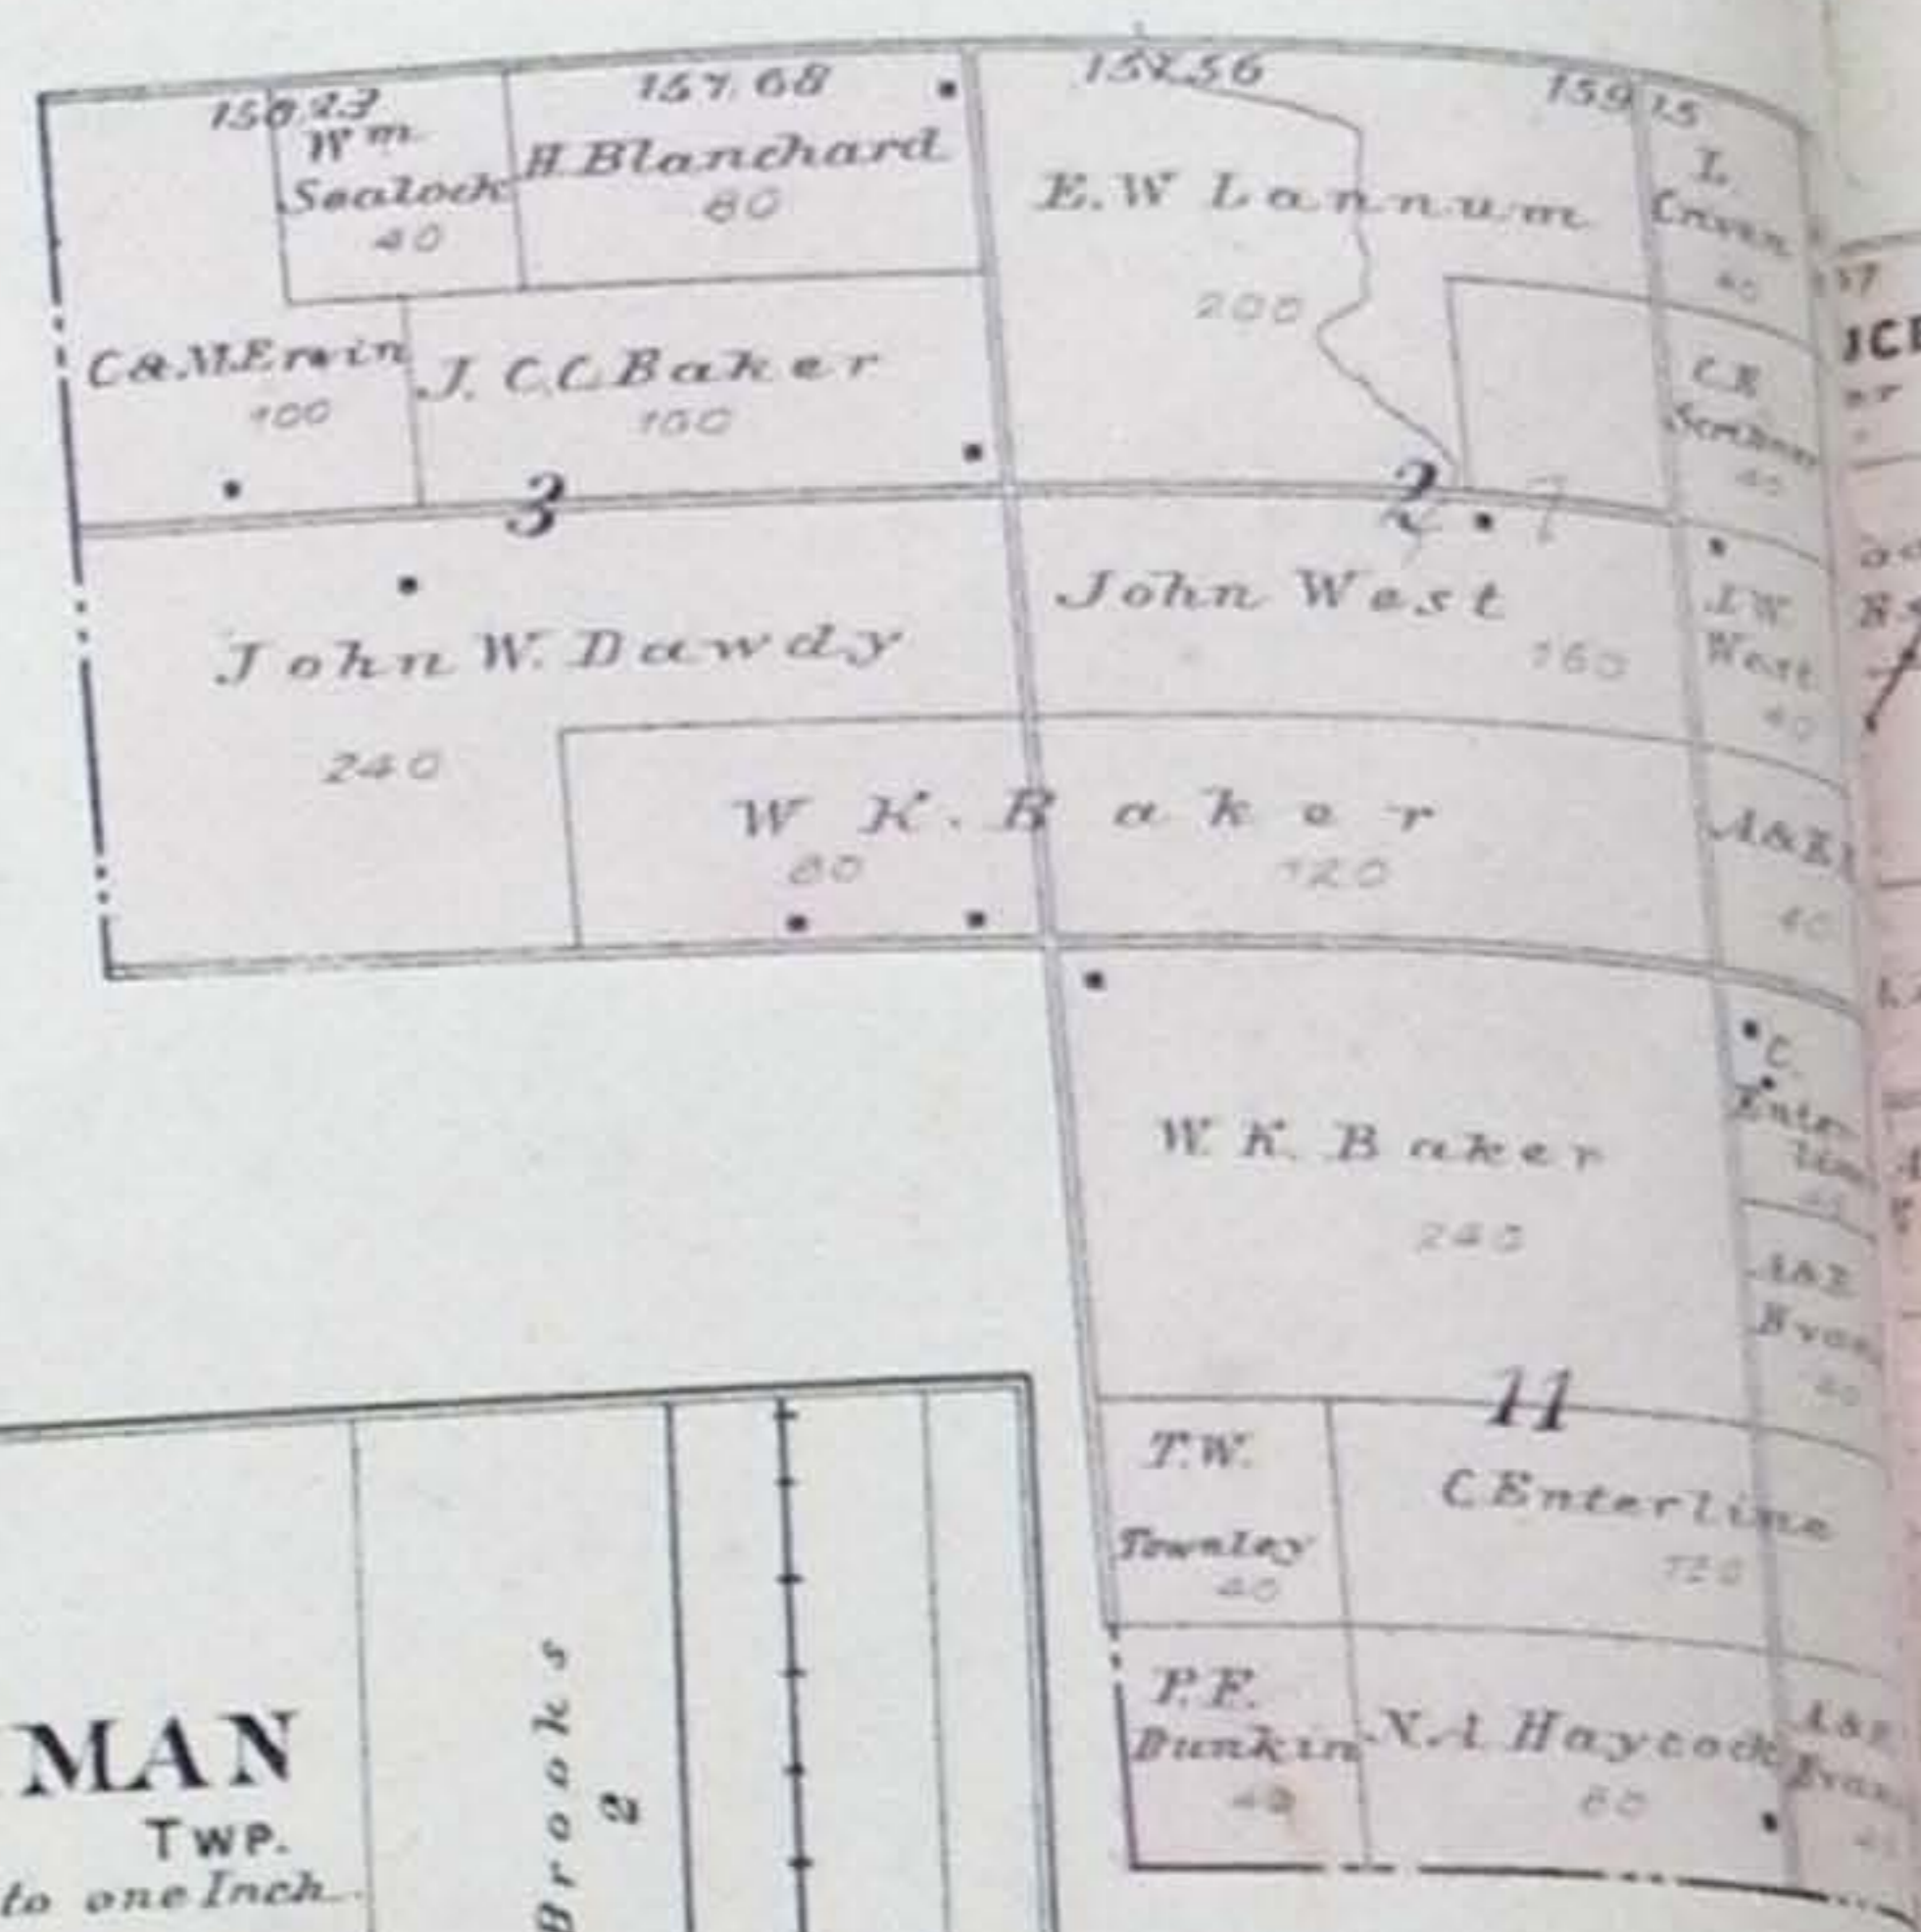 158.23
Wm
Sealock
40
157.68
H. Blanchard
80
157.56
159.15
E. W Lannum
200
L.
Craven
40
C & M. Erwin
100
J. C. C. Baker
100
C. E.
40
3
2
7
John W. Dawdy
240
John West
160
J W.
West
40
W K. Baker
80
120
A & E
40
W. K. Baker
240
C.
Enter-
line
A & E
Evans
40
11
T. W.
Townley
40
C. Enterline
120
P. F.
Dunkin
40
N. A. Haycock
80
A & E
Evans
MAN
TWP.
to one Inch
Brooks
2